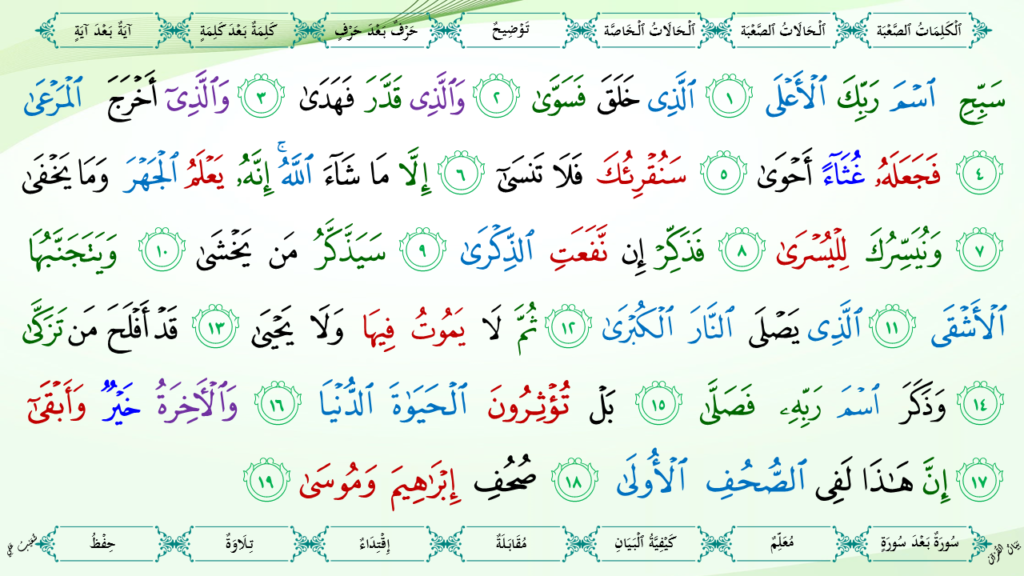 اَلْكَلِمَاتُ الصَّعْبَة اَلْحَالَاتُ الصَّعْبَة اَلْحَالَاتُ الْخَاصَّة تَوْضِيحٌ حَرْفٌ بَعْدَ حَرْفٍ كَلِمَةٌ بَعْدَ كَلِمَةٍ آيَةٌ بَعْدَ آيَةٍ
سَبِّحِ ٱسْمَ رَبِّكَ ٱلْأَعْلَى ١ ٱلَّذِى خَلَقَ فَسَوَّىٰ ٢ وَٱلَّذِى قَدَّرَ فَهَدَىٰ ٣ وَٱلَّذِىٓ أَخْرَجَ ٱلْمَرْعَىٰ
٤ فَجَعَلَهُۥ غُثَآءً أَحْوَىٰ ٥ سَنُقْرِئُكَ فَلَا تَنسَىٰٓ ٦ إِلَّا مَا شَآءَ ٱللَّهُ ۚ إِنَّهُۥ يَعْلَمُ ٱلْجَهْرَ وَمَا يَخْفَىٰ
٧ وَنُيَسِّرُكَ لِلْيُسْرَىٰ ٨ فَذَكِّرْ إِن نَّفَعَتِ ٱلذِّكْرَىٰ ٩ سَيَذَّكَّرُ مَن يَخْشَىٰ ١٠ وَيَتَجَنَّبُهَا
ٱلْأَشْقَى ١١ ٱلَّذِى يَصْلَى ٱلنَّارَ ٱلْكُبْرَىٰ ١٢ ثُمَّ لَا يَمُوتُ فِيهَا وَلَا يَحْيَىٰ ١٣ قَدْ أَفْلَحَ مَن تَزَكَّىٰ
١٤ وَذَكَرَ ٱسْمَ رَبِّهِۦ فَصَلَّىٰ ١٥ بَلْ تُؤْثِرُونَ ٱلْحَيَوٰةَ ٱلدُّنْيَا ١٦ وَٱلْأَخِرَةُ خَيْرٌ وَأَبْقَىٰٓ
١٧ إِنَّ هَـٰذَا لَفِى ٱلصُّحُفِ ٱلْأُولَىٰ ١٨ صُحُفِ إِبْرَٰهِيمَ وَمُوسَىٰ ١٩
سُورَةٌ بَعْدَ سُورَةٍ مُعَلِّمٌ كَيْفِيَّةُ الْبَيَانِ مُقَابَلَةٌ إِقْتِدَاءٌ تِلَاوَةٌ حِفْظٌ